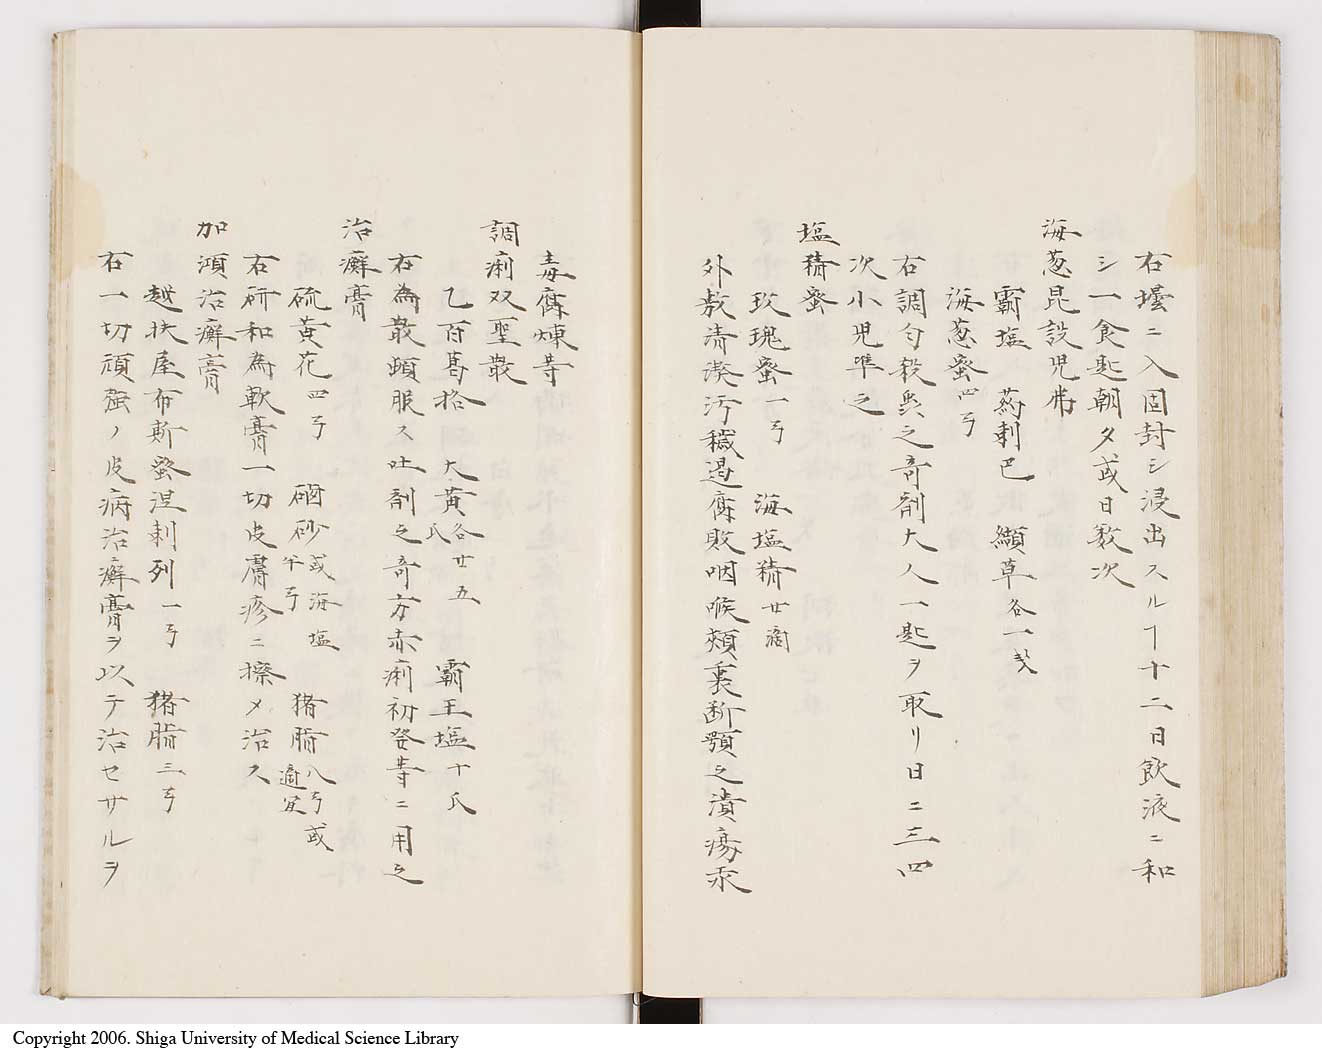 右壜ニ入固封シ浸出スルヿ十二日飲液ニ和
シ一食匙朝夕或日数次
海葱昆設児弗
覇塩 葯剌巴 纈草各一戔
海葱蜜四弓
右調匀殺虫之奇剤大人一匙ヲ取リ日ニ三四
次小児準之
塩精蜜
玫瑰蜜一弓 海塩精廿滴
外敷清湊汚穢過腐敗咽喉頬裏齗顎之潰瘍汞
毒腐煉等
調痢双聖散
乙百葛格 大黄各廿五氏 覇王塩十氏
右為散頓服ス吐剤之奇方赤痢初発等ニ用之
治癬膏
硫黄花四弓 硇砂或海塩半弓 猪脂八弓或適宜
右研和為軟膏一切皮膚疹ニ擦メ治ス
加澒治癬膏
越扶屋布斯蛩涅剌列一弓 猪脂三弓
右一切頑強ノ皮病治癬膏ヲ以テ治セサルヲ
Copyright 2006. Shiga University of Medical Science Library